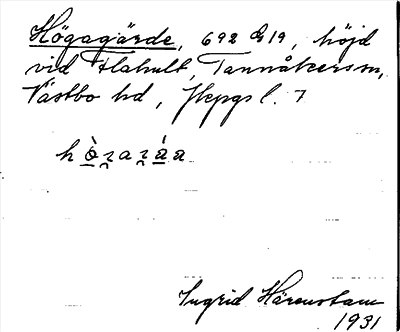 Högagärde, 692 G 19, höjd
vid Flahult, Tannåkers sn,
Västbo hd, Jkpgs l. 7
Ingrid Härenstam
1931